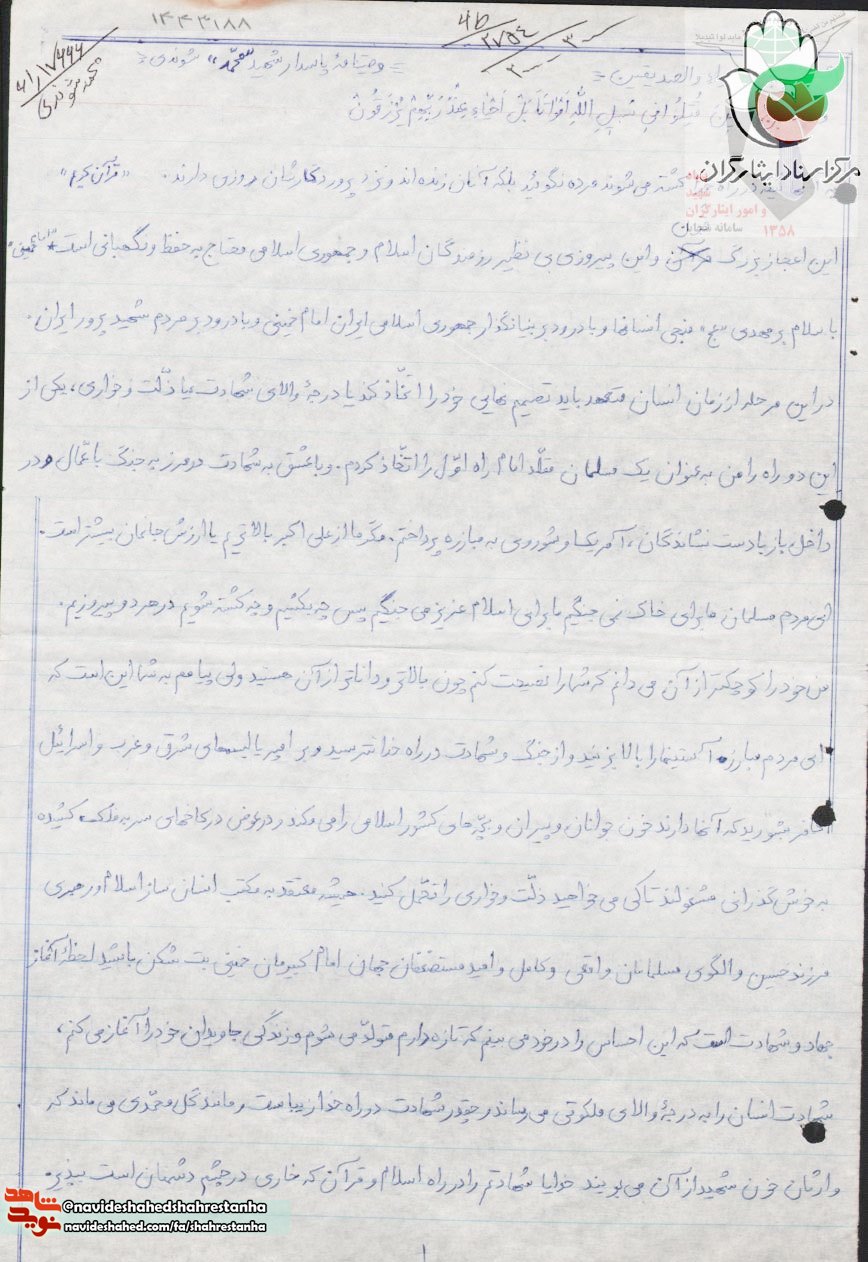 ۱۴۴۳۱۸۸
۴۵
۲۷۵۴
۳۰
۲۰
۴۱/۱۷۶۶۶
محمد شوندی
= وصیتنامهٔ پاسدار شهید "محمّد" شوندی =
والصدیقین =
قُتِلُوا فی سَبیلِ اللهِ اَمْواتاً بَلْ اَحْیاءٌ عِنْدَ رَبِّهِمْ یُرْزَقُونْ
کشته می‌شوند مرده نگوئید بلکه آنان زنده‌اند و نزد پروردگارشان روزی دارند. "قرآن کریم"
این اعجاز بزرگ قرن و این پیروزی بی نظیر رزمندگان اسلام و جمهوری اسلامی محتاج به حفظ و نگهبانی است "امام خمینی"
با سلام بر مهدی "عج" منجی انسانها و با درود بر بنیانگذار جمهوری اسلامی ایران امام خمینی و با درود بر مردم شهید پرور ایران.
در این مرحله از زمان انسان متعهد باید تصمیم نهایی خود را اتّخاذ کند یا درجهٔ والای شهادت یا ذلّت و خواری، یکی از
این دو راه را من به عنوان یک مسلمان مقلّد امام راه اوّل را اتّخاذ کردم. و با عشق به شهادت در مرز به جنگ با عمّال و در
داخل بار با دست نشاندگان، آمریکا و شوروی به مبارزه پرداختم. مگر ما از علی اکبر بالاتریم یا ارزش جانمان بیشتر است.
ای مردم مسلمان ما برای خاک نمی جنگیم ما برای اسلام عزیز می جنگیم پس چه بکشیم و چه کشته شویم در هر دو پیروزیم.
من خود را کوچکتر از آن می دانم که شما را نصیحت کنم چون بالاتر و داناتر از آن هستید ولی پیامم به شما این است که
ای مردم مبارز، آستینها را بالا بزنید و از جنگ و شهادت در راه خدا نترسید و بر امپریالیسمهای شرق و غرب و اسرائیل
کافر بشورید که آنها دارند خون جوانان و پیران و بچّه های کشور اسلامی را می مکند و در عوض در کاخهای سر به فلک کشیده
به خوش گذرانی مشغولند تا کی می خواهید ذلّت و خواری را تحمّل کنید. همیشه معتقد به مکتب انسان ساز اسلام و رهبری
فرزند حسین و الگوی مسلمانان واقعی و کامل و امید مستضعفان جهان امام کبیرمان خمینی بت شکن باشید لحظهٔ آغاز
جهاد و شهادت است که این احساس را در خود می بینم که تازه دارم متولّد می شوم و زندگی جاویدان خود را آغاز می کنم،
شهادت انسان را به درجهٔ والای ملکوتی می رساند چقدر شهادت در راه خدا زیباست و مانند گل محمّدی می ماند که
وارثان خون شهید از آن می بویند خدایا شهادتم را در راه اسلام و قرآن که خاری در چشم دشمنان است بپذیر.
۱
مرکز اسناد ایثارگران
شهید
و امور ایثارگران
سامانه سجایا
۱۳۵۸
نوید شاهد
@navideshahedshahrestanha
navideshahed.com/fa/shahrestanha